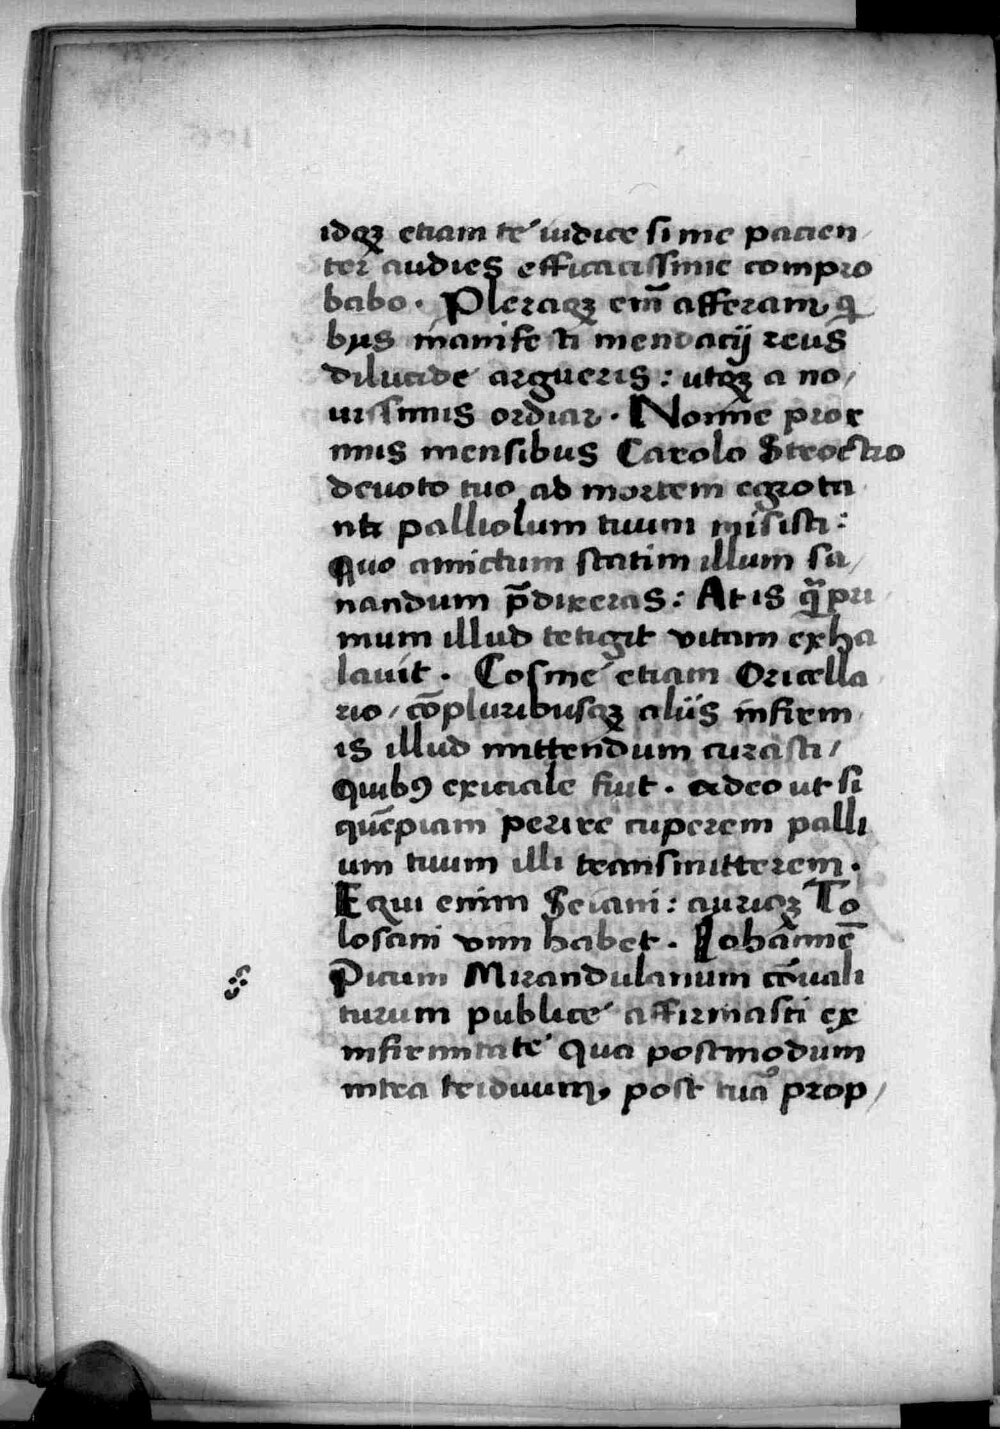 idqꝫ etiam te iudice si me pacien/
ter audies efficacissime compro
babo. Pleraqꝫ em̄ afferam, qͥ
bus manifesti mendacij reus
dilucide argueris: utqꝫ a no/
uissimis ordiar. Nonne prox
imis mensibus Carolo Stroctio
deuoto tuo ad mortem egrota
nti palliolum tuum misisti:
Quo amictum statim illum sa/
nandum p̄dixeras: At is qͣpri
mum illud tetigit vitam exha
lauit. Cosme etiam Oricella
rio/ cōpluribusqꝫ aliis infirm
is illud mittendum curasti/
quibꝰ exiciale fuit. adeo ut si
quēpiam perire cuperem palli
um tuum illi transmitterem.
Equi enim Seiani: auriqꝫ To
losani vim habet. Iohānnē
Picum Mirandulanum cōuali
turum publice affirmasti ex
infirmitate qua postmodum
intra triduum, post tuā prop/